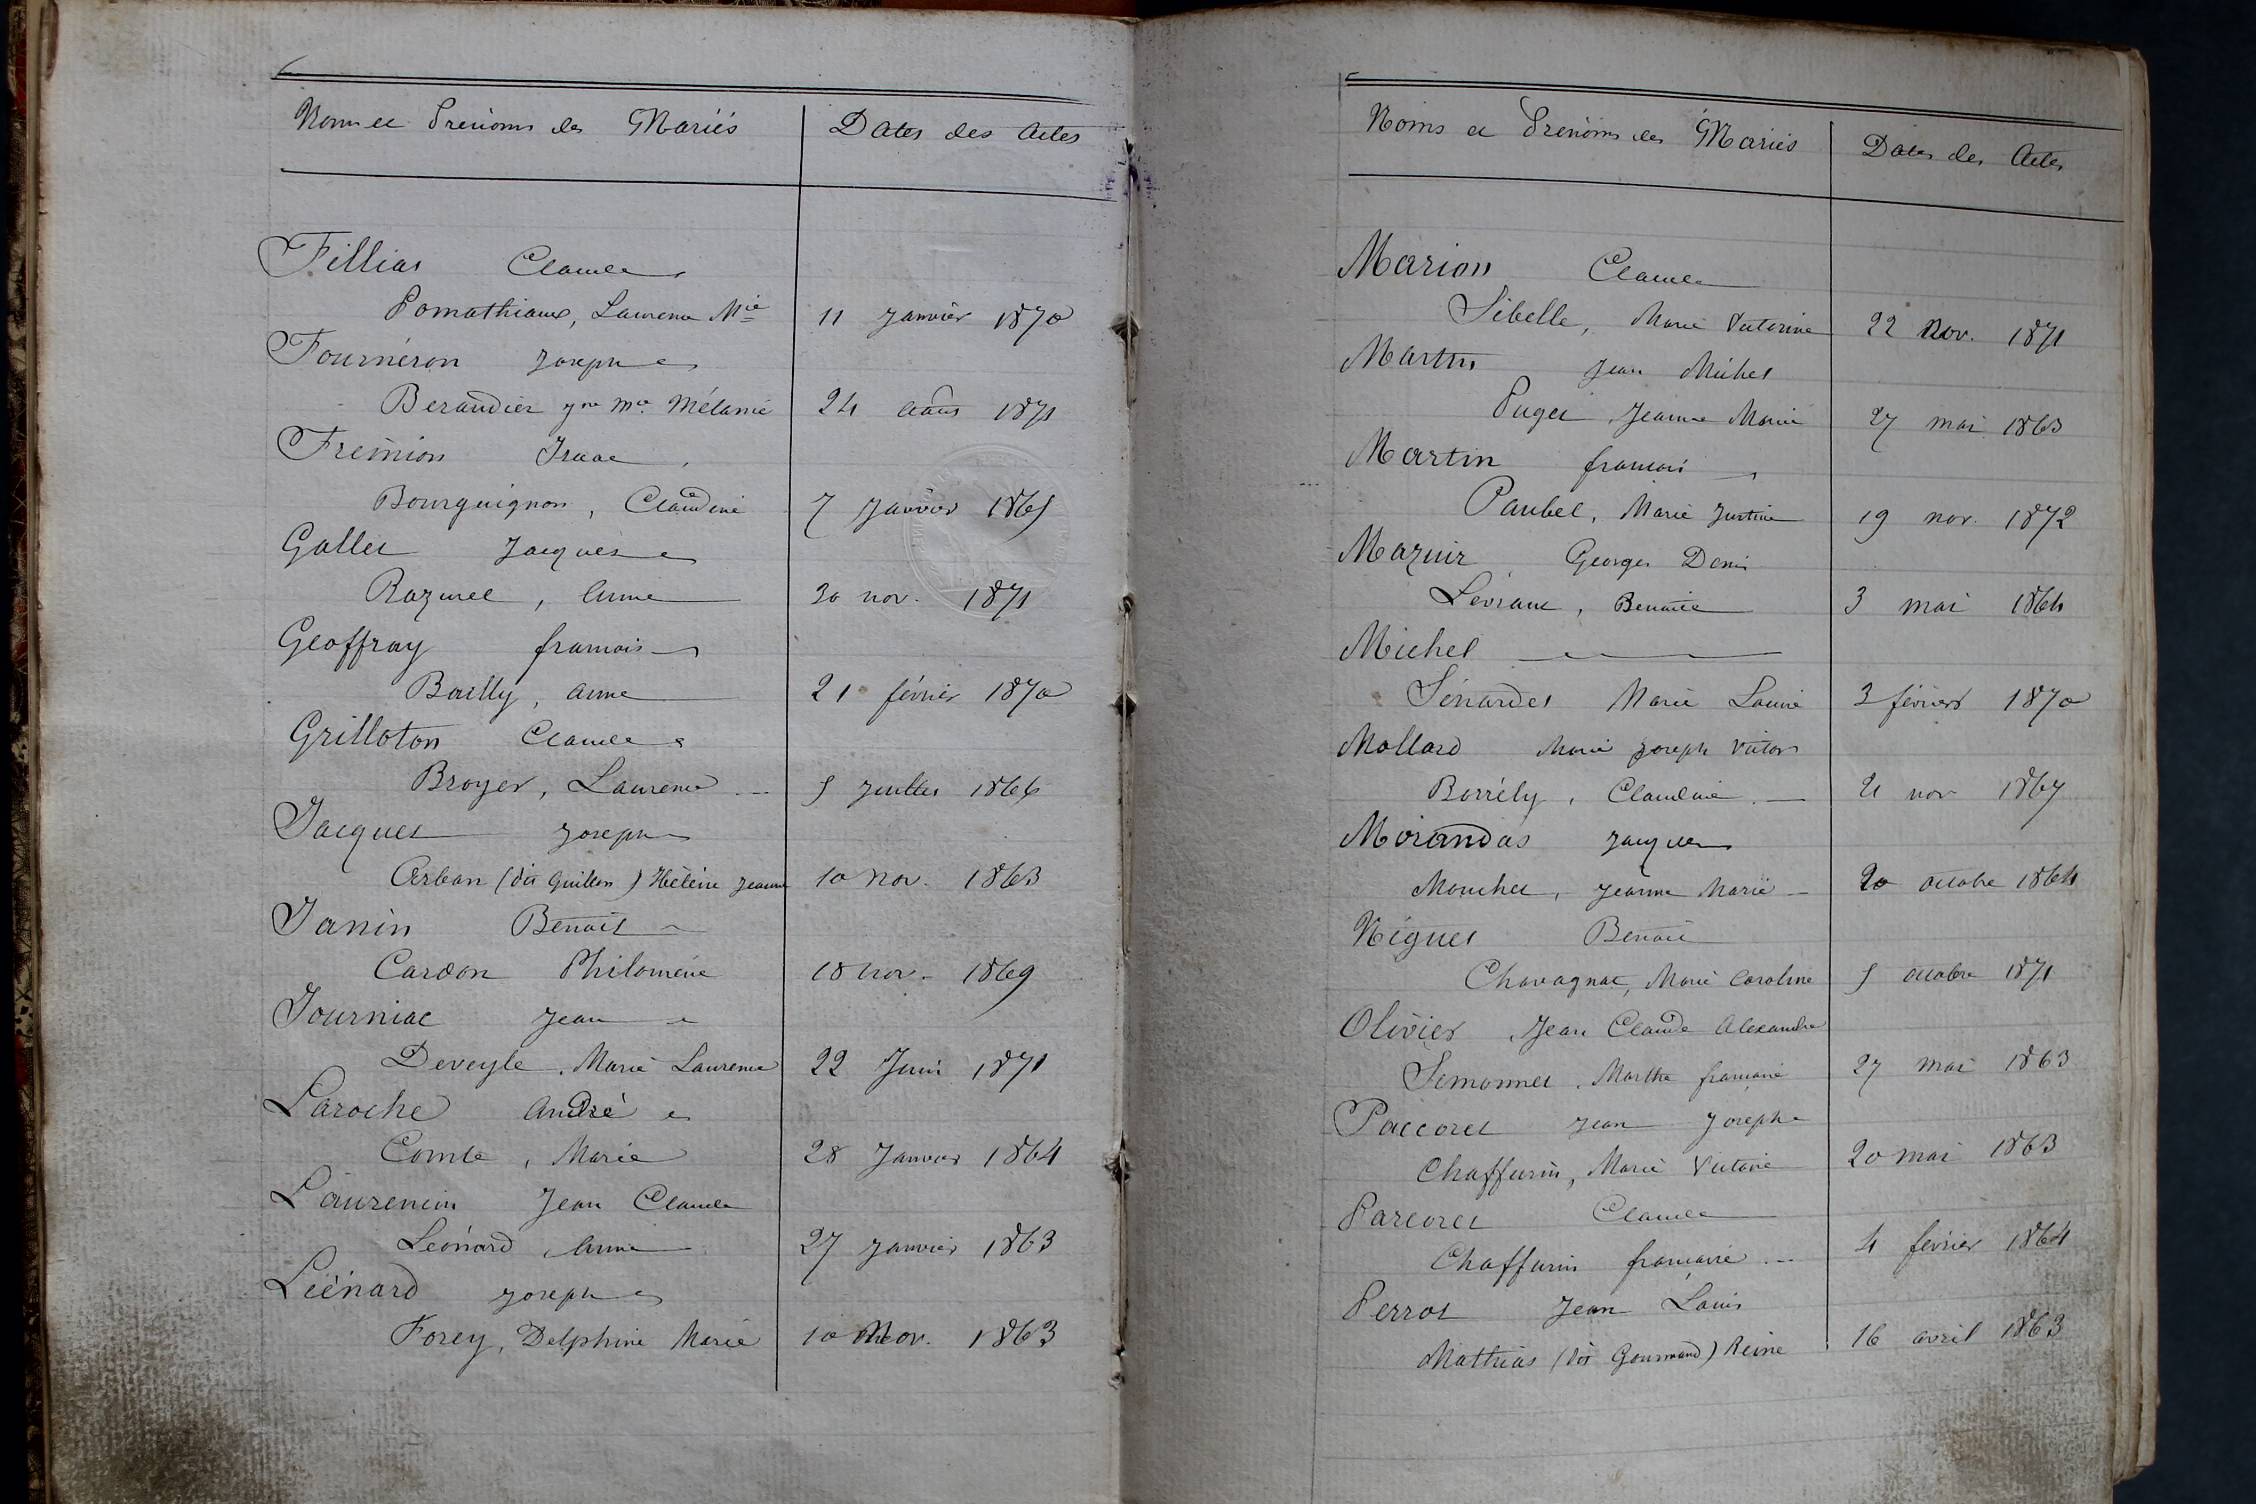 Noms et Prénoms des Mariés Dates des Actes
Fillias Claude
Pomathiaux, Laurence Mie 11 Janvier 1870
Fournéron Joseph
Beraudier Mélanie 24 août 1871
Fremion Isaac
Bourguignon, Claudine 7 Janvier 1865
Gallet Jacques
Razurel, Anne 30 nov. 1871
Geoffray françois
Bailly, anne 21 février 1870
Grilloton Claude
Broyer, Laurence 5 Juillet 1866
Jacquet Joseph
Arban (dit Guillon) Hélène Jeanne 10 nov. 1863
Janin Benoit
Cardon Philomène 18 nov. 1869
Journiac Jean
Deveyle, Marie Laurence 22 Juin 1871
Laroche André
Comte, Marie 28 Janvier 1864
Laurencin Jean Claude
Léonard, Anne 27 Janvier 1863
Liénard Joseph
Forey, Delphine Marie 10 Nov. 1863
Noms et Prénoms des Mariés Dates des Actes
Marion Claude
Sibelle, Marie Victorine 22 Nov. 1871
Martin Jean Michel
Puget, Jeanne Marie 27 mai 1863
Martin françois
Paubel, Marie Justine 19 nov. 1872
Mazuir Georges Denis
Levraux, Benoite 3 mai 1864
Michel
Sénardet Marie Louise 3 février 1870
Mollard Marie Joseph Victor
Borrély, Claudine 21 nov 1867
Morandas Jacques
Mouchet, Jeanne Marie 20 octobre 1864
Niguet Benoit
Chavagnat, Marie Caroline 5 octobre 1871
Olivier, Jean Claude Alexandre
Simonnet, Marthe françoise 27 mai 1863
Paccoret Jean Joseph
Chaffurin, Marie Victoire 20 mai 1863
Parcoret Claude
Chaffurin françoise 4 février 1864
Perrot Jean Louis
Mathias (dit Gourmand) Reine 16 avril 1863